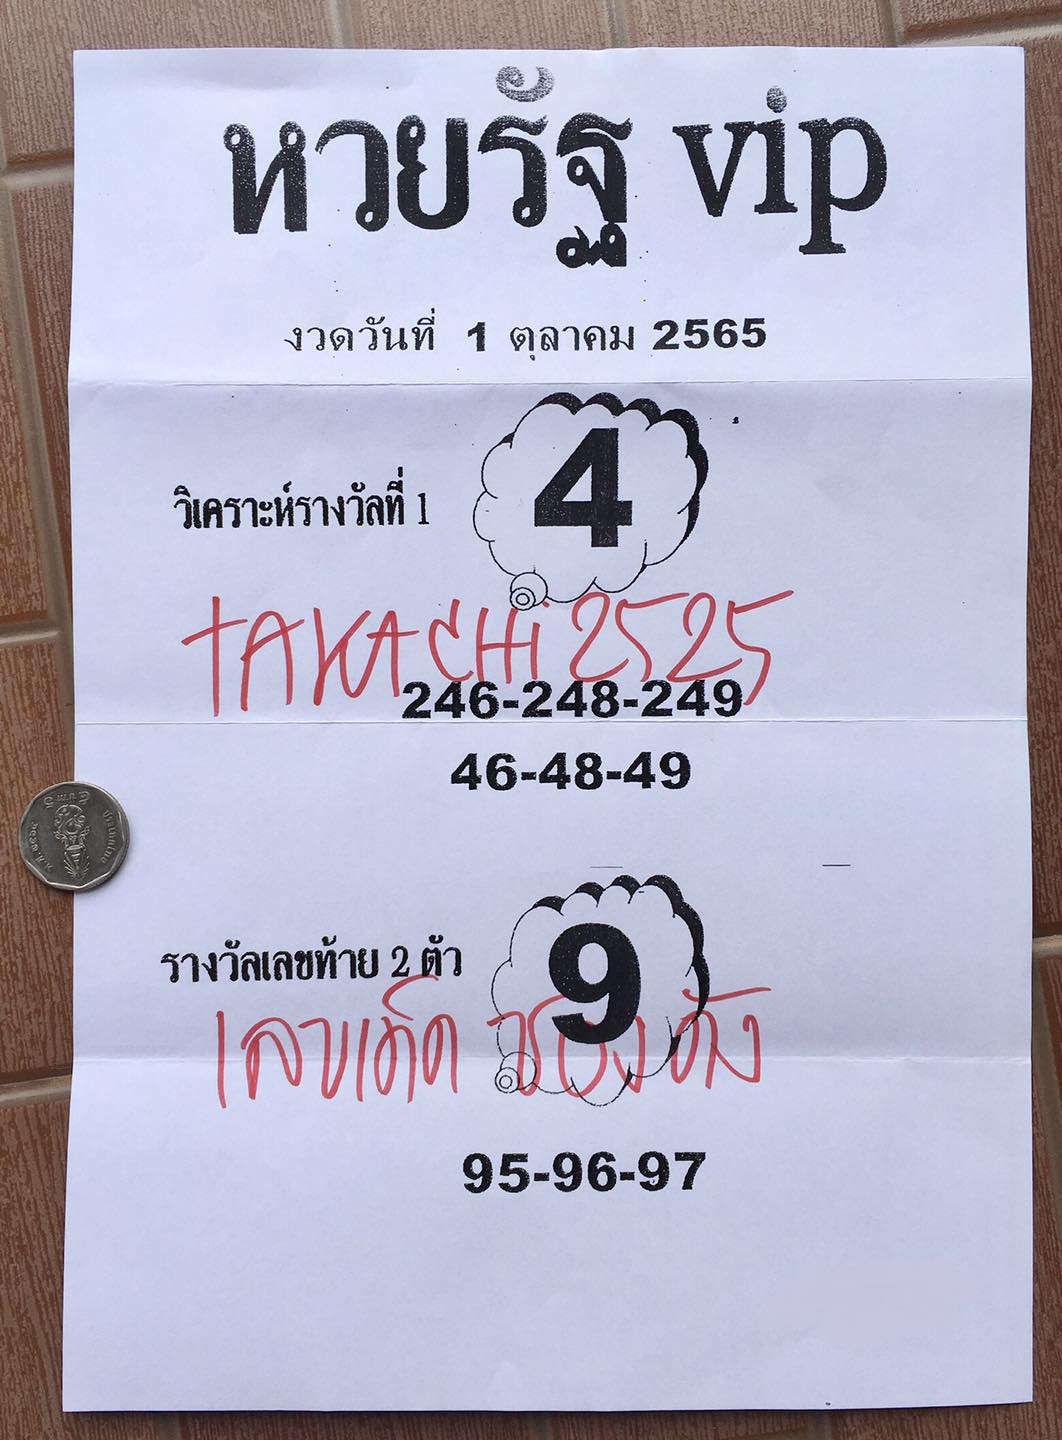 หวยรัฐ vip
งวดวันที่ 1 ตุลาคม 2565
4
วิเคราะห์รางวัลที่ 1
TAKACHi 2525
246-248-249
46-48-49
9
รางวัลเลขท้าย 2 ตัว
เลขเด็ด ซองดัง
95-96-97